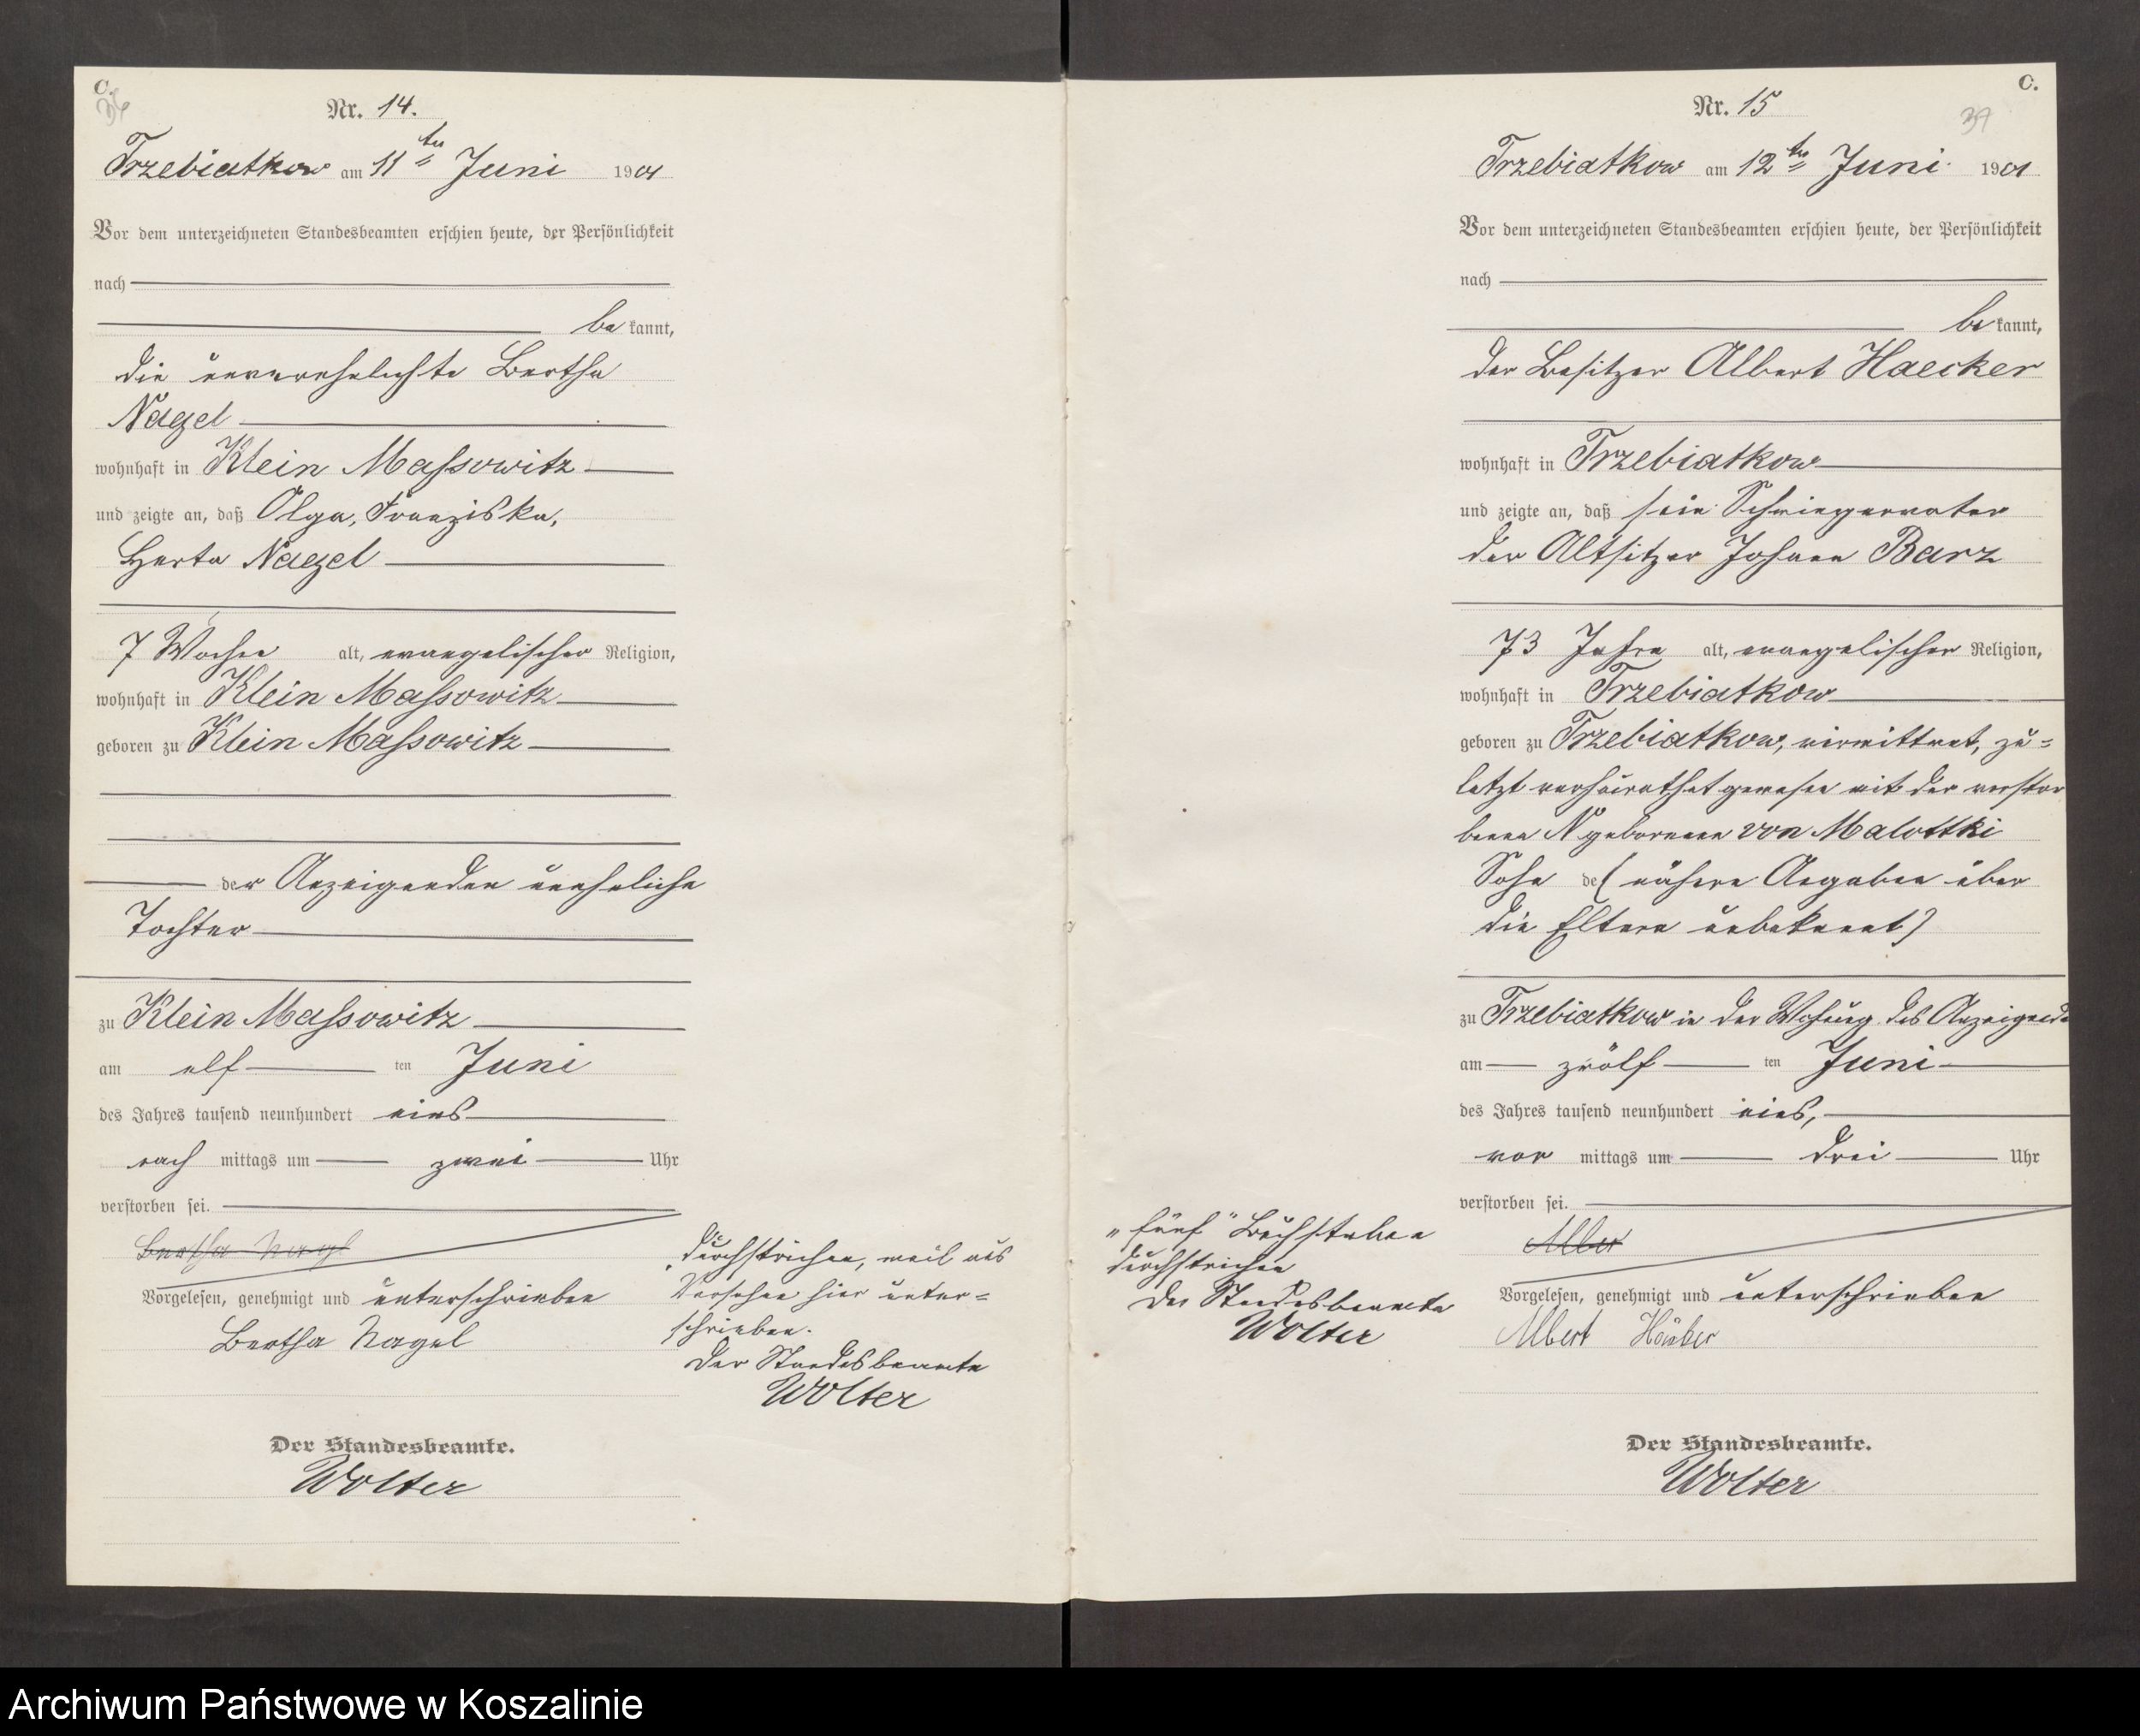 C.
36
Nr. 14.
Trzebiatkow am 11ten Juni 1901
Vor dem unterzeichneten Standesbeamten erschien heute, der Persönlichkeit
nach
be kannt,
die unverehelichte Bertha
Nagel
wohnhaft in Klein Massowitz
und zeigte an, daß Olga, Franziska,
Herta Nagel
7 Wochen alt, evangelischer Religion,
wohnhaft in Klein Massowitz
geboren zu Klein Massowitz
der Anzeigenden uneheliche
Tochter
zu Klein Massowitz
am elf ten Juni
des Jahres tausend neunhundert eins
nach mittags um zwei Uhr
verstorben sei.
Bertha Nagel
Vorgelesen, genehmigt und unterschrieben
Bertha Nagel
Der Standesbeamte.
Wolter
durchstrichen, weil aus
Versehen hier unter-
schrieben.
Der Standesbeamte
Wolter
C.
37
Nr. 15
Trzebiatkow am 12ten Juni 1901
Vor dem unterzeichneten Standesbeamten erschien heute, der Persönlichkeit
nach
be kannt,
der Besitzer Albert Haecker
wohnhaft in Trzebiatkow
und zeigte an, daß sein Schwiegervater
der Altsitzer Johann Barz
73 Jahre alt, evangelischer Religion,
wohnhaft in Trzebiatkow
geboren zu Trzebiatkow, verwittwet, zu-
letzt verheirathet gewesen mit der verstor
benen N geborenen von Malottki
Sohn de (nähere Angaben über
die Eltern unbekannt)
zu Trzebiatkow in der Wohnung des Anzeigende
am zwölf ten Juni
des Jahres tausend neunhundert eins,
vor mittags um drei Uhr
verstorben sei.
Alber
Vorgelesen, genehmigt und unterschrieben
Albert Häcker
Der Standesbeamte.
Wolter
"fünf" Buchstaben
durchstrichen
Der Standesbeamte
Wolter
Archiwum Państwowe w Koszalinie